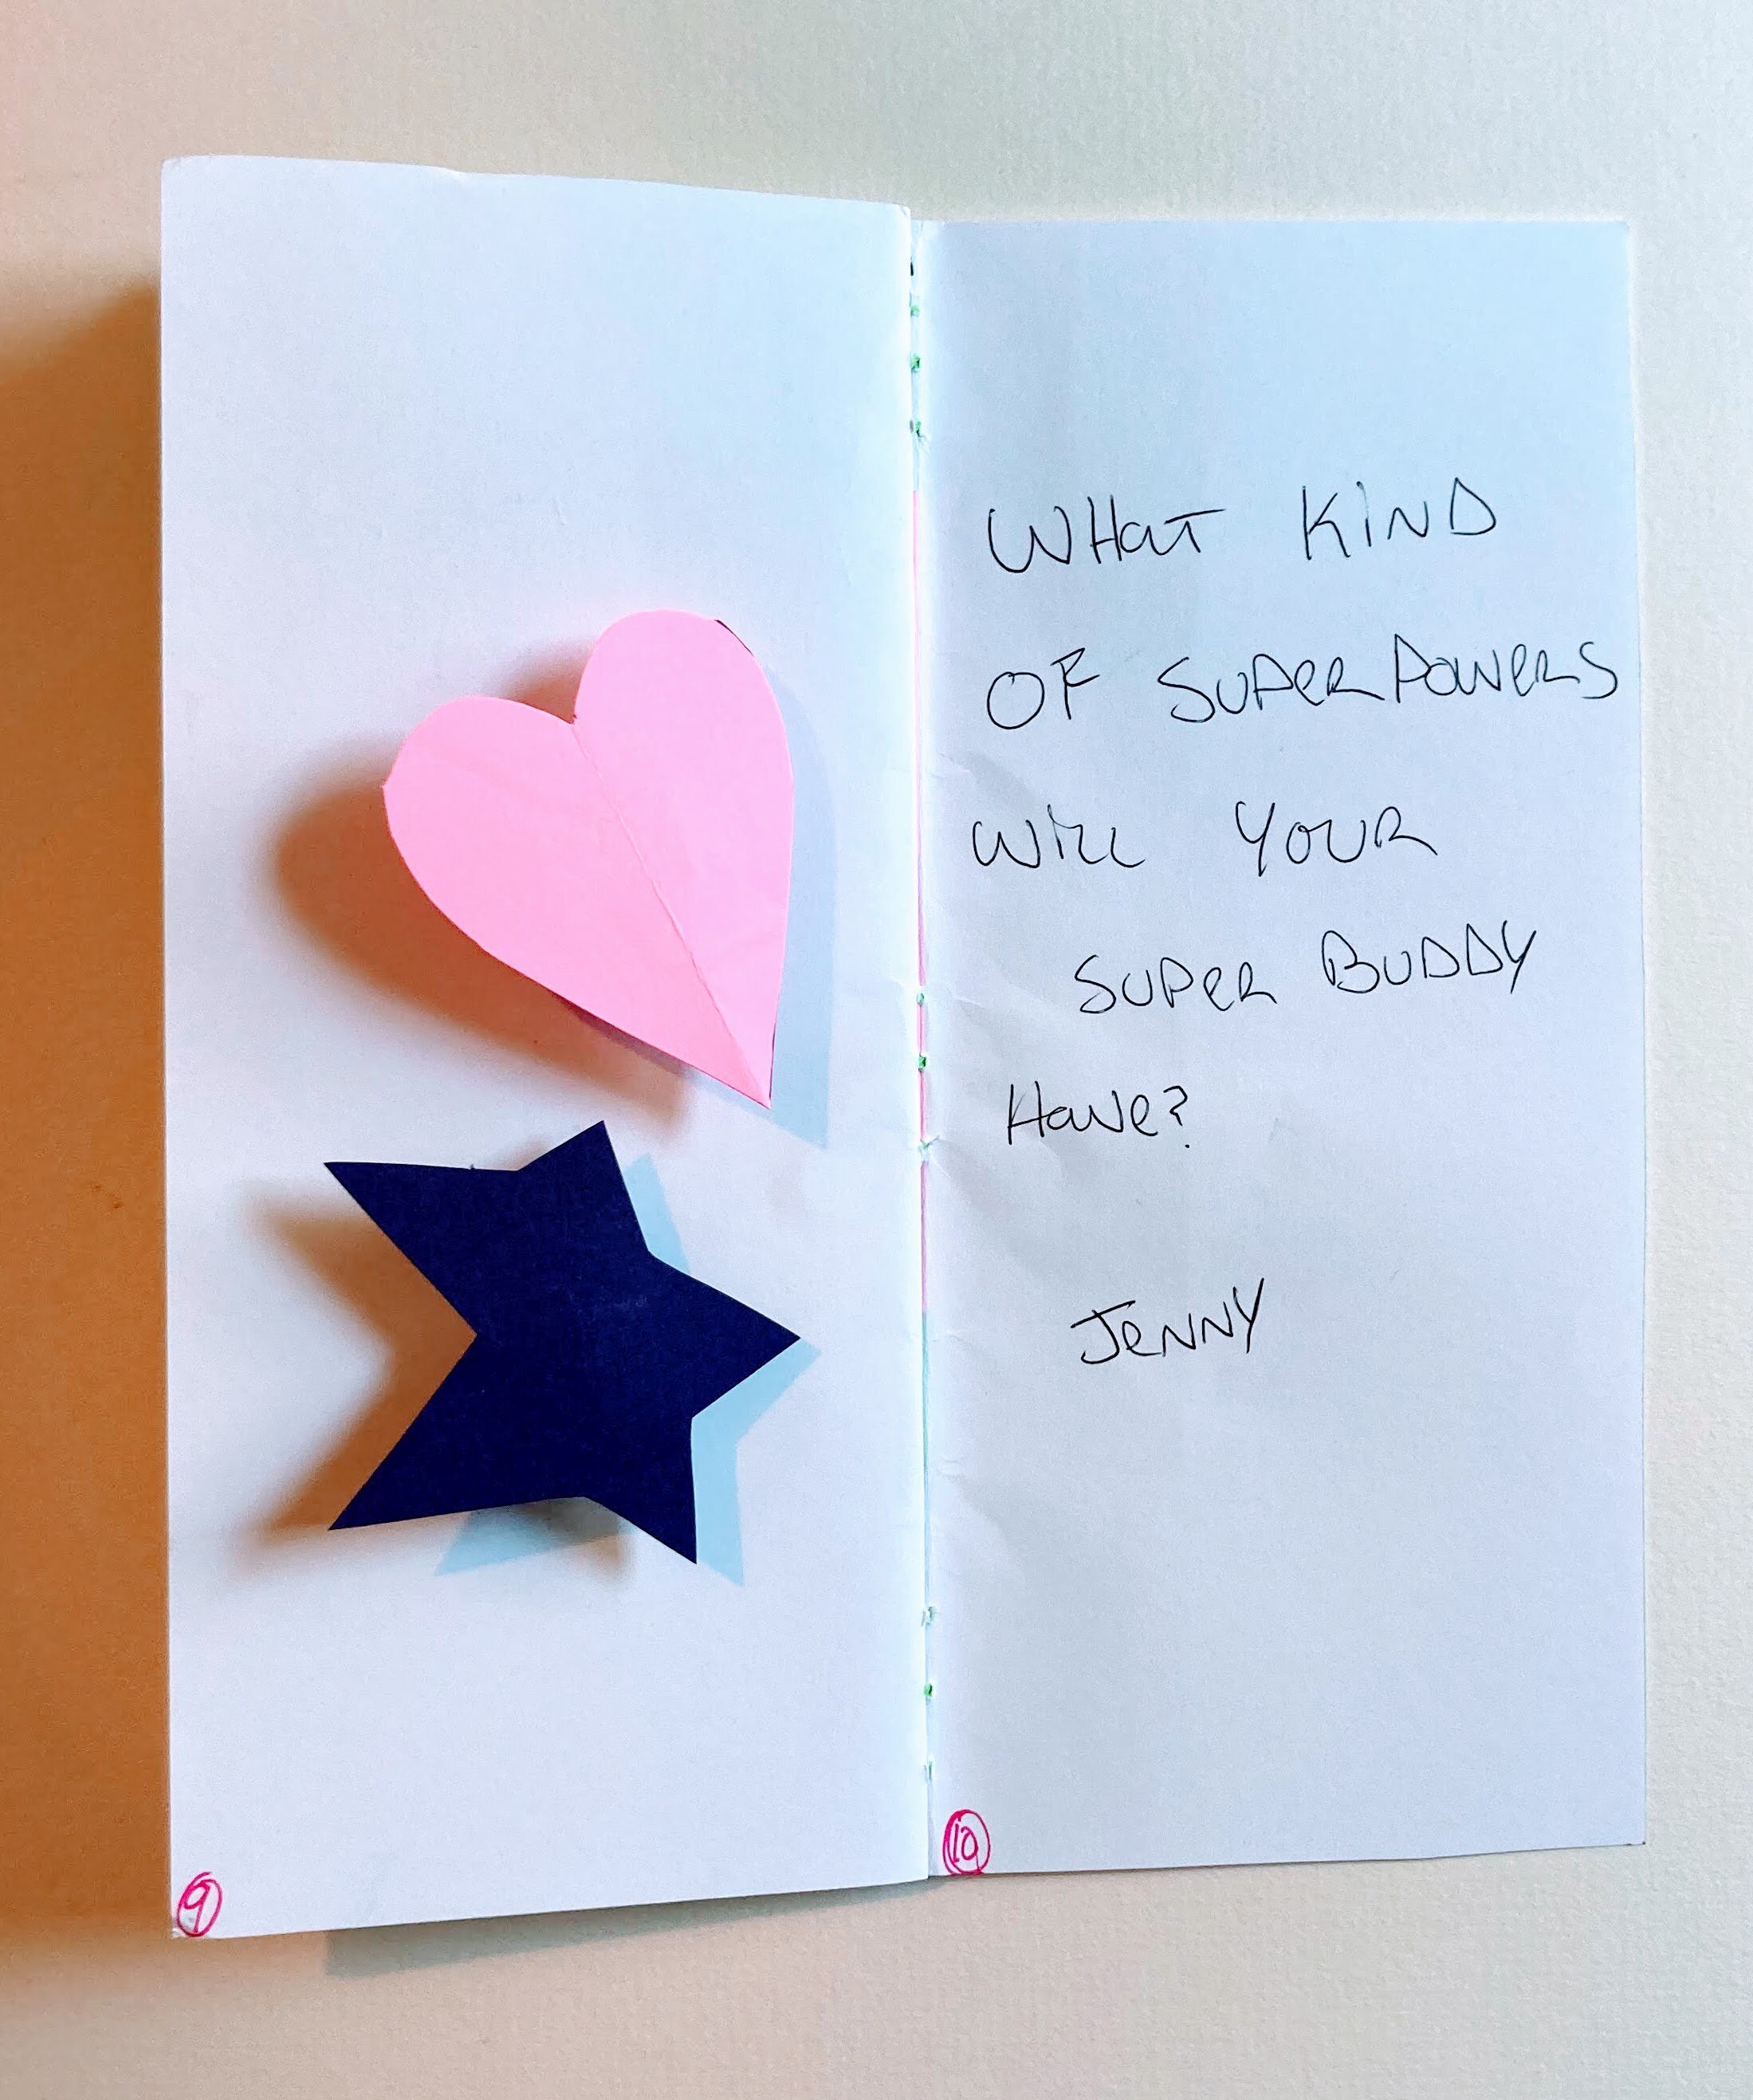 WHAT KIND
OF SUPERPOWERS
WILL YOUR
SUPER BUDDY
HAVE?
JENNY
9
10